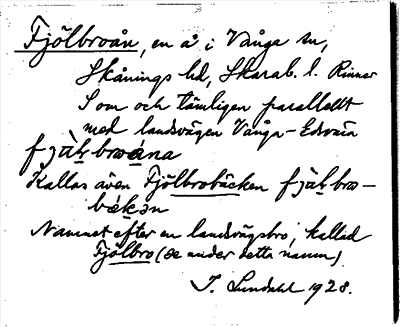 Fjölbroån, en å i Vånga sn,
Skånings hd, Skarab. l. Rinner
Som och tämligen parallellt
med landsvägen Vånga-Edsvära
Kallas även Fjölbrobäcken
Namnet efter en landsvägsbro, kallad
Fjölbro (se under detta namn).
J. Lindahl 1928.